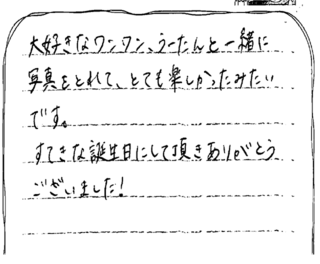 大好きなワンワン、うーたんと一緒に
写真をとれて、とても楽しかったみたい
です。
すてきな誕生日にして頂きありがとう
ございました!